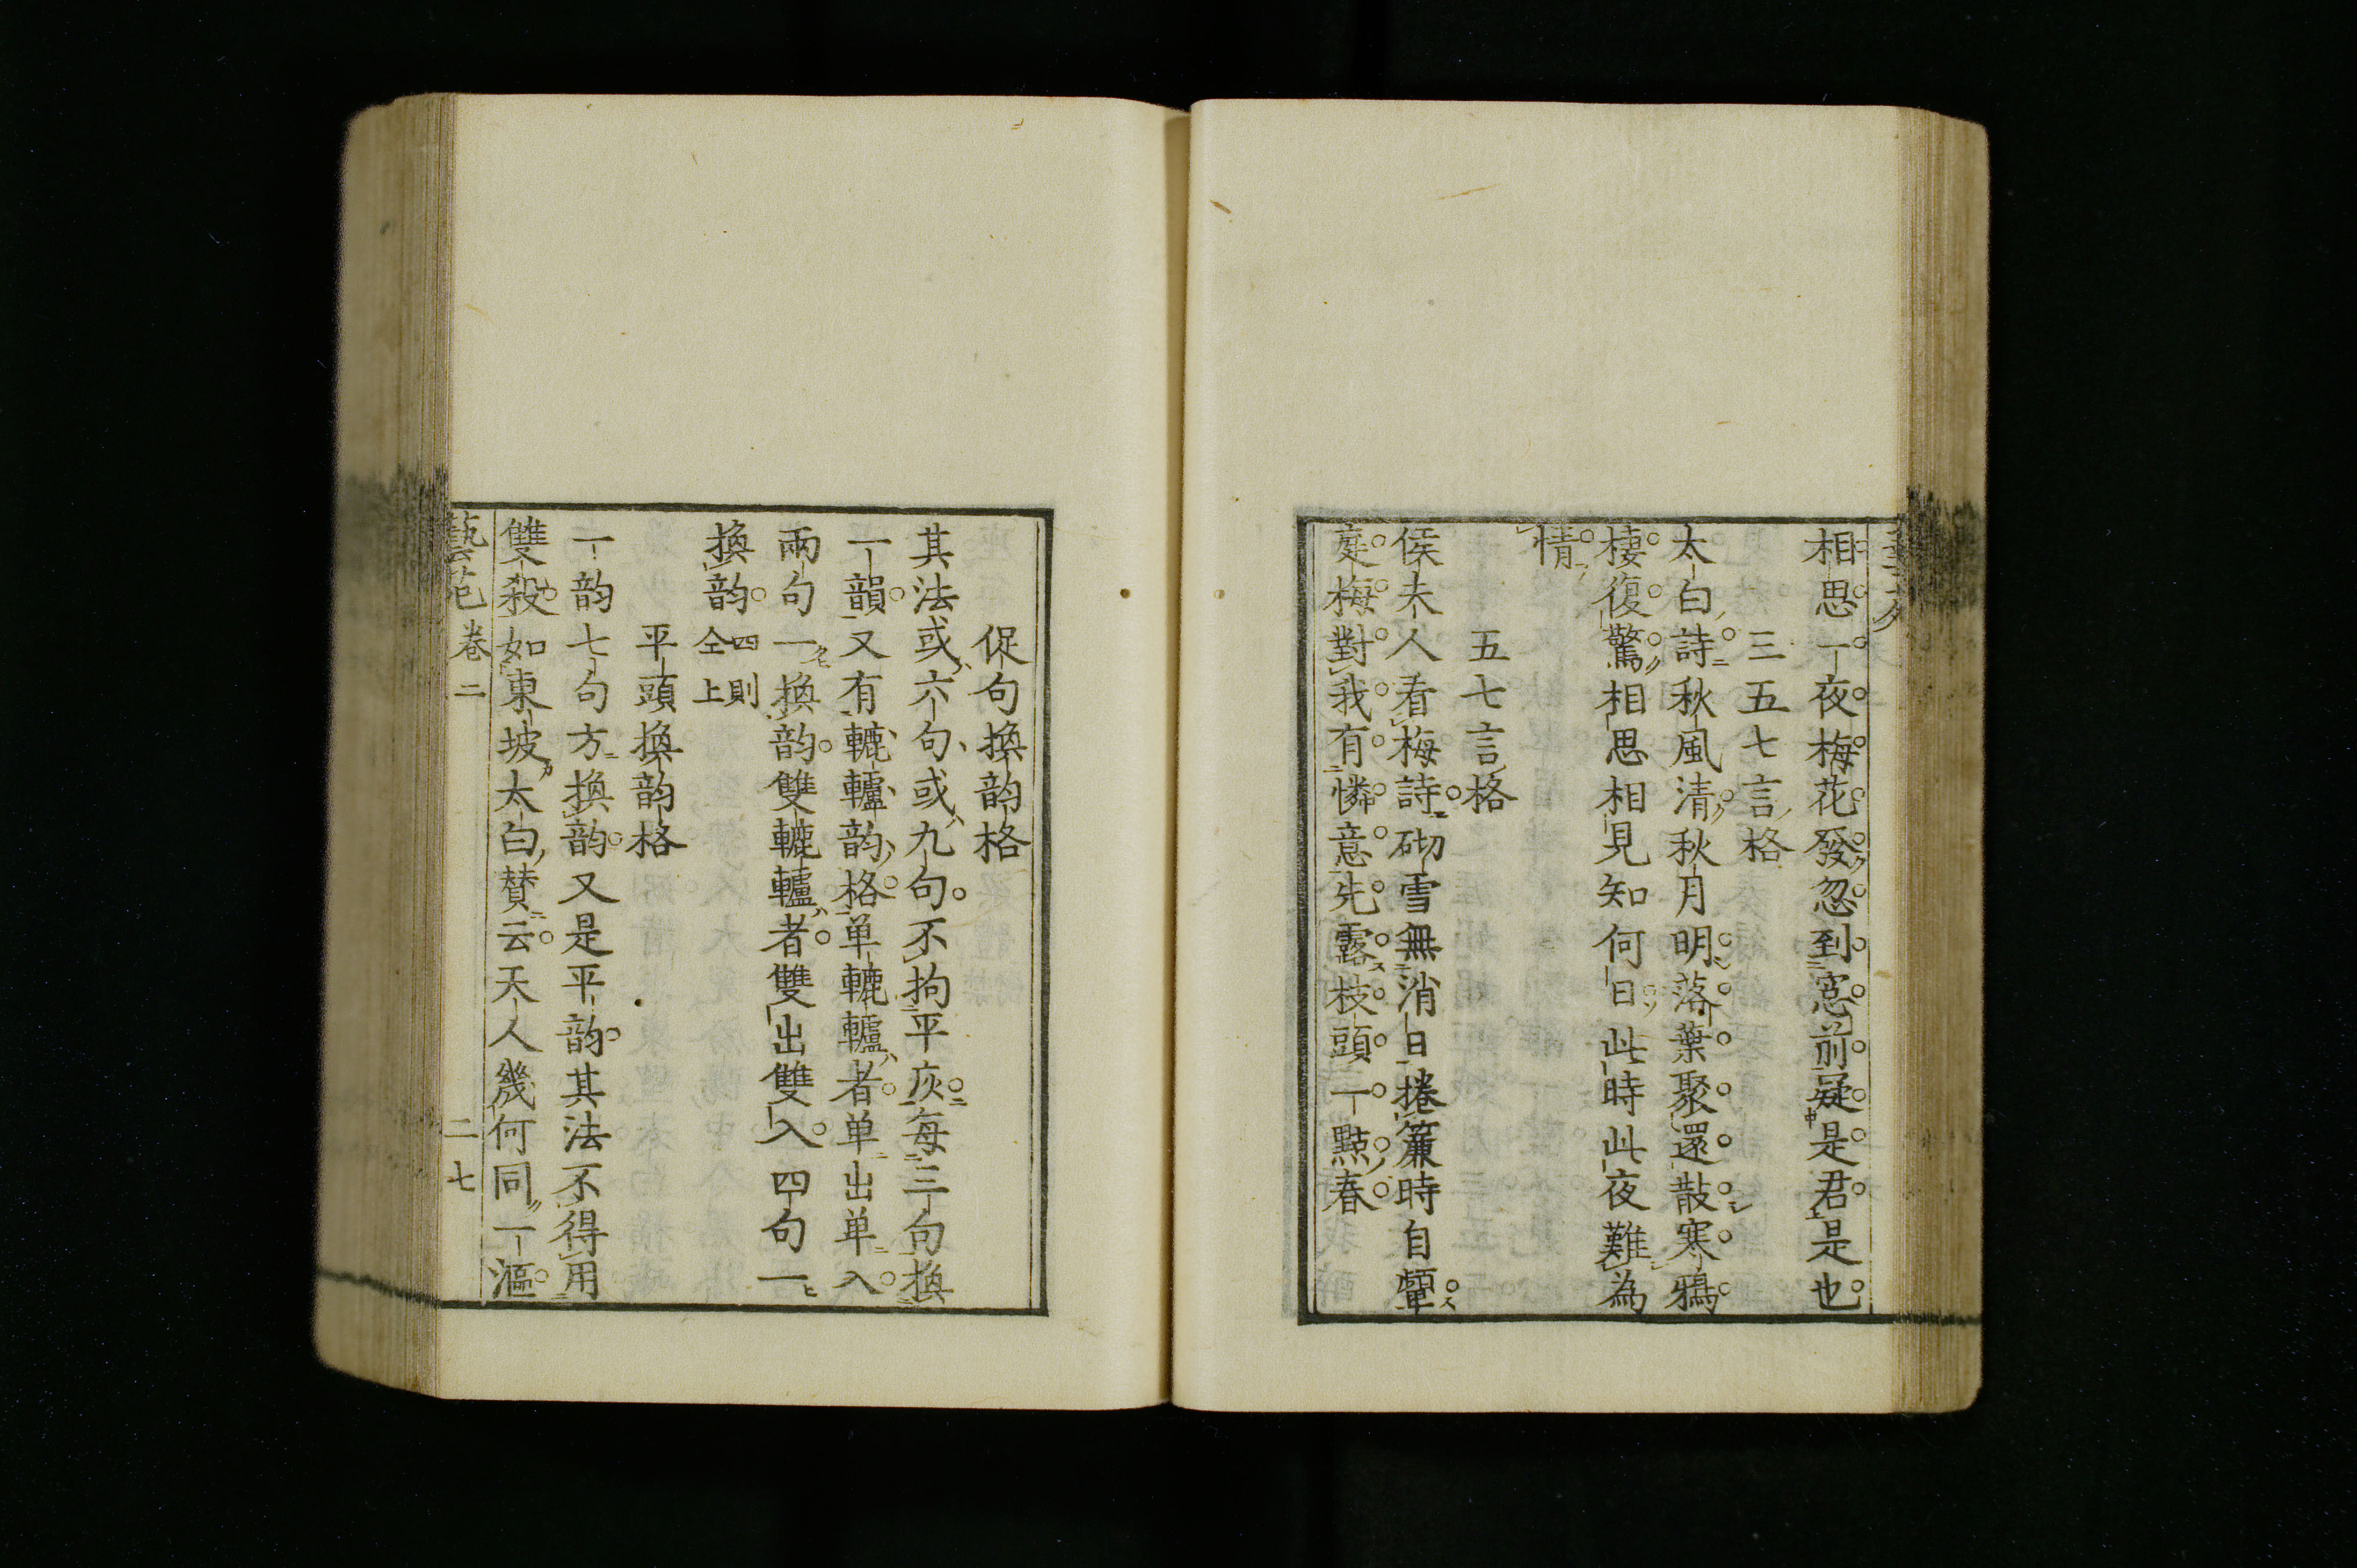 相思一夜梅花發忽到窓前疑是君是也
三五七言格
太白詩秋風清秋月明落葉聚還散寒鴉
棲復驚相思相見知何日此時此夜難為
情
五七言格
侯夫人看梅詩砌雪無消日捲簾時自顰
庭梅對我有憐意先露枝頭一點春
促句換韵格
其法或六句或九句不拘平灰每三句換
一韻又有轆轤韵格単轆轤者単出単入
兩句一換韵雙轆轤者雙出雙入四句一
換韵四則仝上
平頭換韵格
一韵七句方換韵又是平韵其法不得用
雙殺如東坡太白贊云天人幾何同一漚
藝苑 卷二 二七